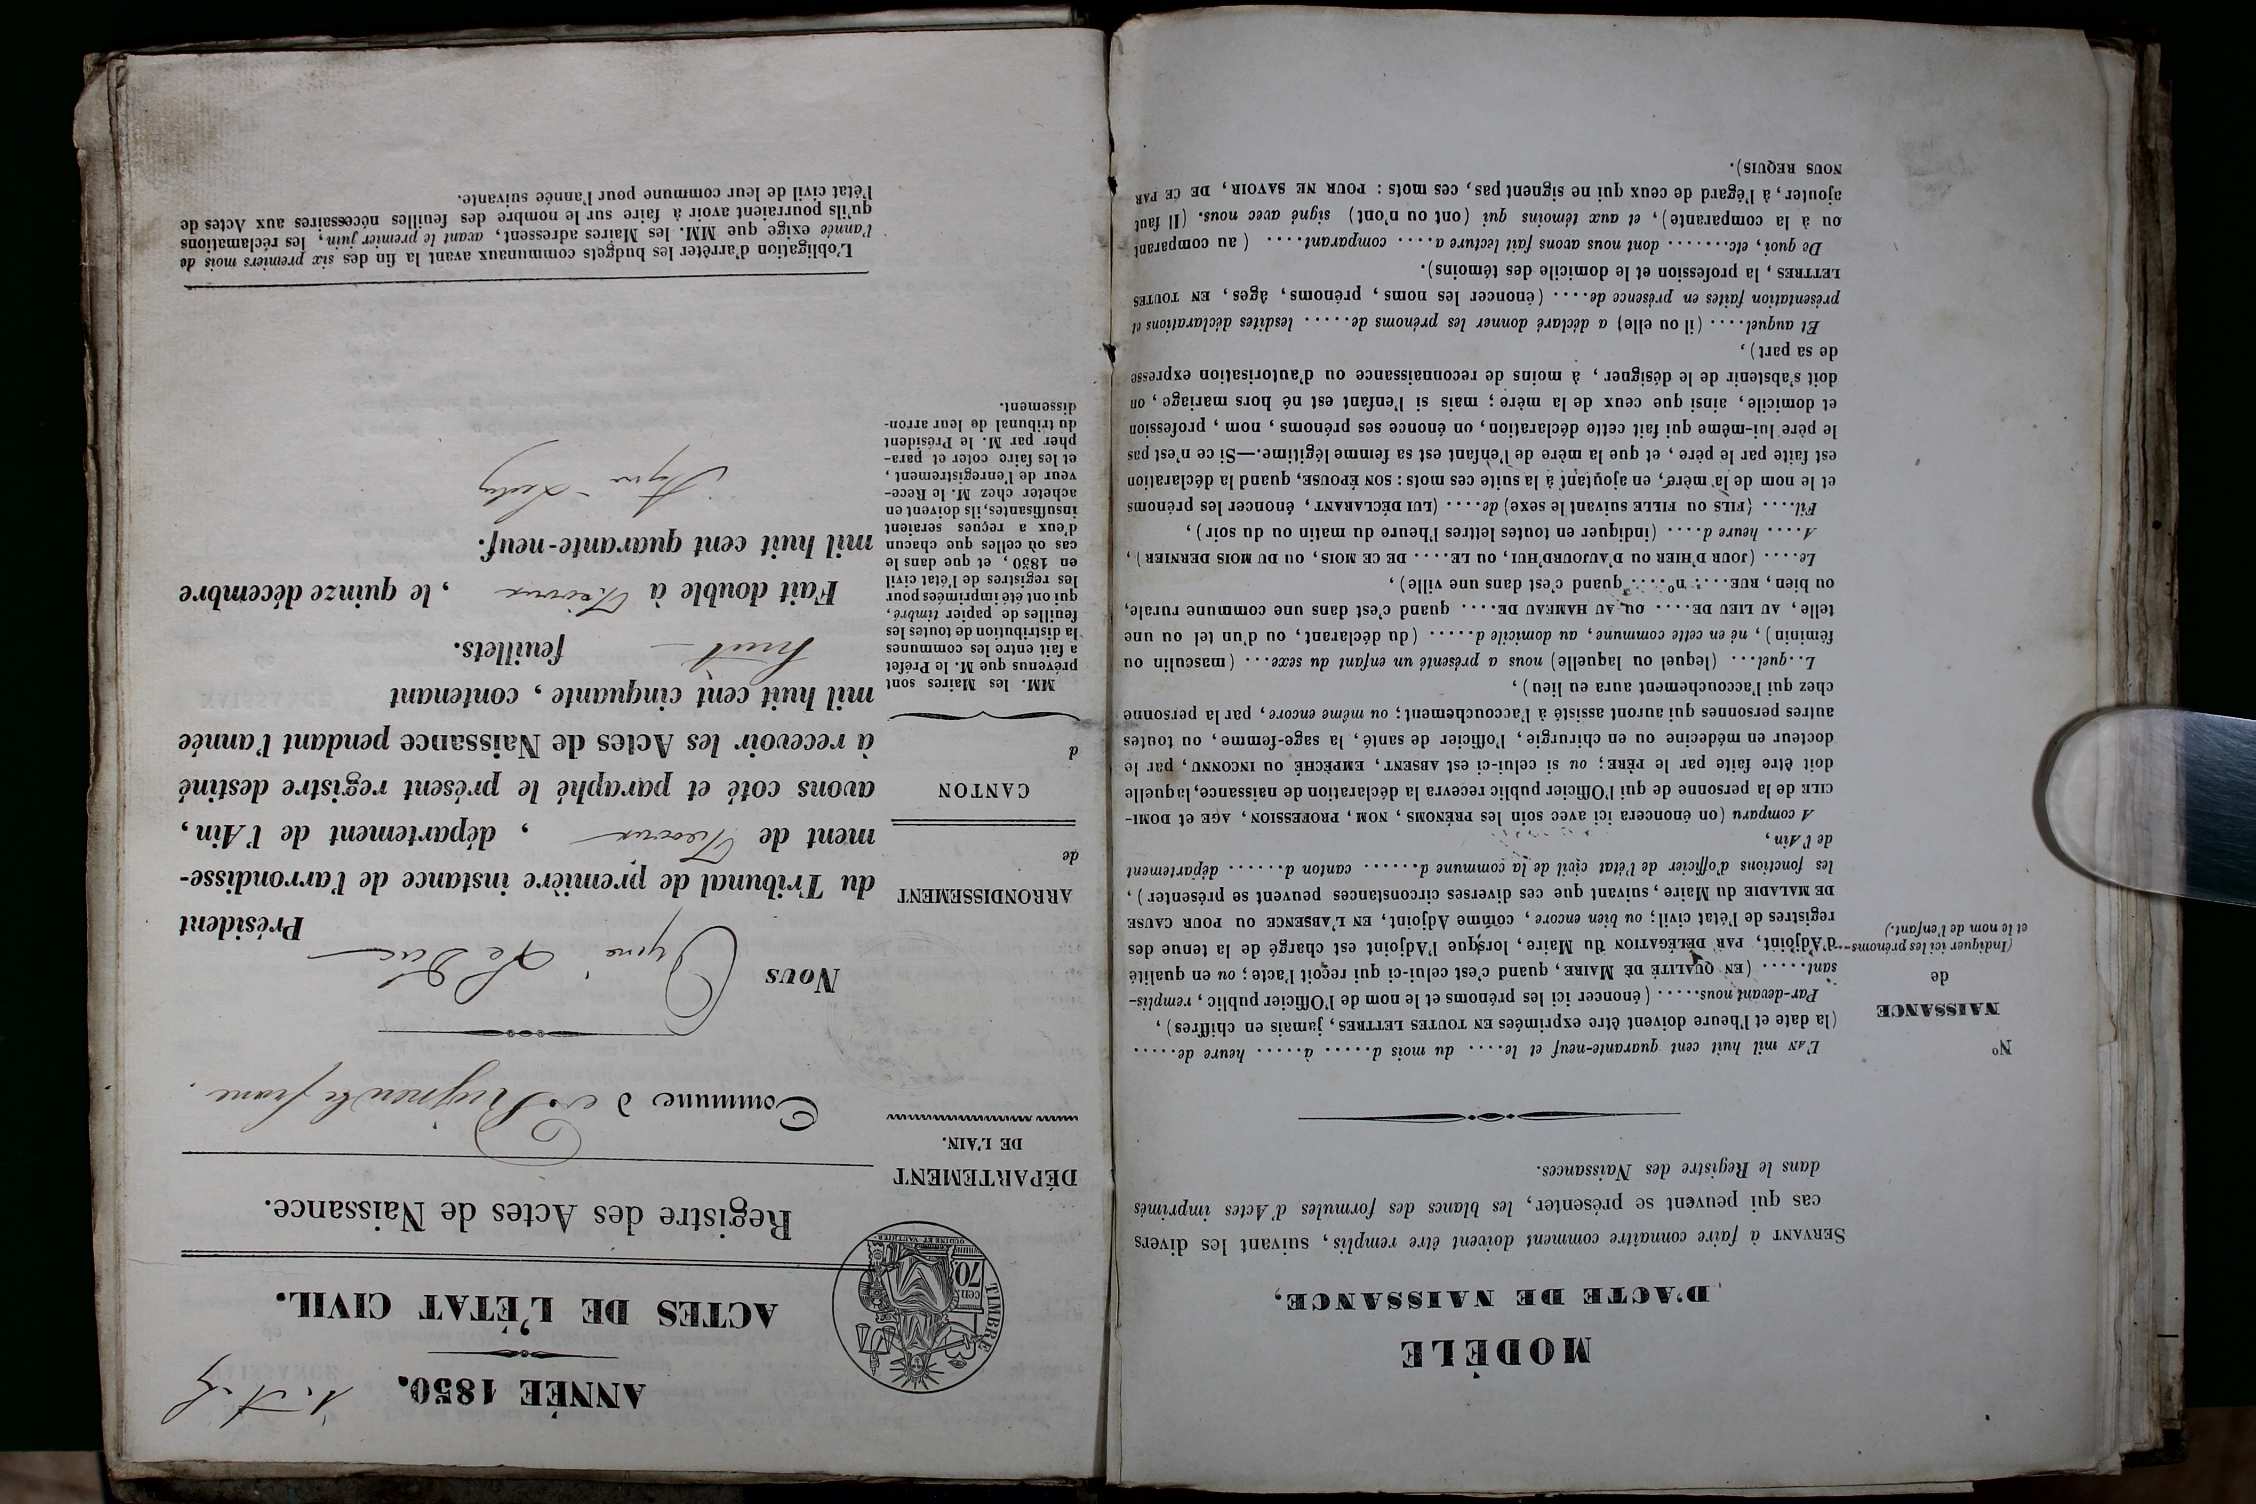 MODÈLE
D'ACTE DE NAISSANCE,
SERVANT à faire connaître comment doivent être remplis, suivant les divers
cas qui peuvent se présenter, les blancs des formules d'Actes imprimés
dans le Registre des Naissances.
N°
NAISSANCE
de
(Indiquer ici les prénoms
et le nom de l'enfant.)
L'AN mil huit cent quarante-neuf et le.... du mois d..... à..... heure de.....
(la date et l'heure doivent être exprimées EN TOUTES LETTRES, jamais en chiffres),
Par-devant nous..... (énoncer ici les prénoms et le nom de l'Officier public, remplis-
sant..... (EN QUALITÉ DE MAIRE, quand c'est celui-ci qui reçoit l'acte; ou en qualité
d'Adjoint, PAR DÉLÉGATION du Maire, lorsque l'Adjoint est chargé de la tenue des
registres de l'état civil; ou bien encore, comme Adjoint, EN L'ABSENCE OU POUR CAUSE
DE MALADIE du Maire, suivant que ces diverses circonstances peuvent se présenter),
les fonctions d'officier de l'état civil de la commune d...... canton d...... département
de l'Ain,
A comparu (on énoncera ici avec soin les PRÉNOMS, NOM, PROFESSION, AGE et DOMI-
CILE de la personne de qui l'Officier public recevra la déclaration de naissance, laquelle
doit être faite par le PÈRE; ou si celui-ci est ABSENT, EMPÊCHÉ OU INCONNU, par le
docteur en médecine ou en chirurgie, l'officier de santé, la sage-femme, ou toutes
autres personnes qui auront assisté à l'accouchement; ou même encore, par la personne
chez qui l'accouchement aura eu lieu),
L..quel... (lequel ou laquelle) nous a présenté un enfant du sexe... (masculin ou
féminin), né en cette commune, au domicile d..... (du déclarant, ou d'un tel ou une
telle, AU LIEU DE.... OU AU HAMEAU DE.... quand c'est dans une commune rurale,
ou bien, RUE.... n°.... quand c'est dans une ville),
Le.... (JOUR D'HIER OU D'AUJOURD'HUI, OU LE.... DE CE MOIS, OU DU MOIS DERNIER),
A.... heure d.... (indiquer en toutes lettres l'heure du matin ou du soir),
Fil.... (FILS OU FILLE suivant le sexe) de.... (LUI DÉCLARANT, énoncer les prénoms
et le nom de la mère, en ajoutant à la suite ces mots: SON ÉPOUSE, quand la déclaration
est faite par le père, et que la mère de l'enfant est sa femme légitime.—Si ce n'est pas
le père lui-même qui fait cette déclaration, on énonce ses prénoms, nom, profession
et domicile, ainsi que ceux de la mère; mais si l'enfant est né hors mariage, on
doit s'abstenir de le désigner, à moins de reconnaissance ou d'autorisation expresse
de sa part),
Et auquel.... (il ou elle) a déclaré donner les prénoms de..... lesdites déclarations et
présentation faites en présence de.... (énoncer les noms, prénoms, âges, EN TOUTES
LETTRES, la profession et le domicile des témoins).
De quoi, etc....... dont nous avons fait lecture a.... comparant.... (au comparant
ou à la comparante), et aux témoins qui (ont ou n'ont) signé avec nous. (Il faut
ajouter, à l'égard de ceux qui ne signent pas, ces mots: POUR NE SAVOIR, DE CE PAR
NOUS REQUIS).
TIMBRE
70 cent.
OUDINÉ ET VAUTHIER
DÉPARTEMENT
DE L'AIN.
ARRONDISSEMENT
de
CANTON
d
MM. les Maires sont
prévenus que M. le Préfet
a fait entre les communes
la distribution de toutes les
feuilles de papier timbré,
qui ont été imprimées pour
les registres de l'état civil
en 1850, et que dans le
cas où celles que chacun
d'eux a reçues seraient
insuffisantes, ils doivent en
acheter chez M. le Rece-
veur de l'enregistrement,
et les faire coter et para-
pher par M. le Président
du tribunal de leur arron-
dissement.
ANNÉE 1850.
ACTES DE L'ÉTAT CIVIL.
Registre des Actes de Naissance.
Commune de Rignieu le franc.
Nous
Président
du Tribunal de première instance de l'arrondisse-
ment de Trévoux, département de l'Ain,
avons coté et paraphé le présent registre destiné
à recevoir les Actes de Naissance pendant l'année
mil huit cent cinquante, contenant
huit feuillets.
Fait double à Trévoux, le quinze décembre
mil huit cent quarante-neuf.
L'obligation d'arrêter les budgets communaux avant la fin des six premiers mois de
l'année exige que MM. les Maires adressent, avant le premier juin, les réclamations
qu'ils pourraient avoir à faire sur le nombre des feuilles nécessaires aux Actes de
l'état civil de leur commune pour l'année suivante.